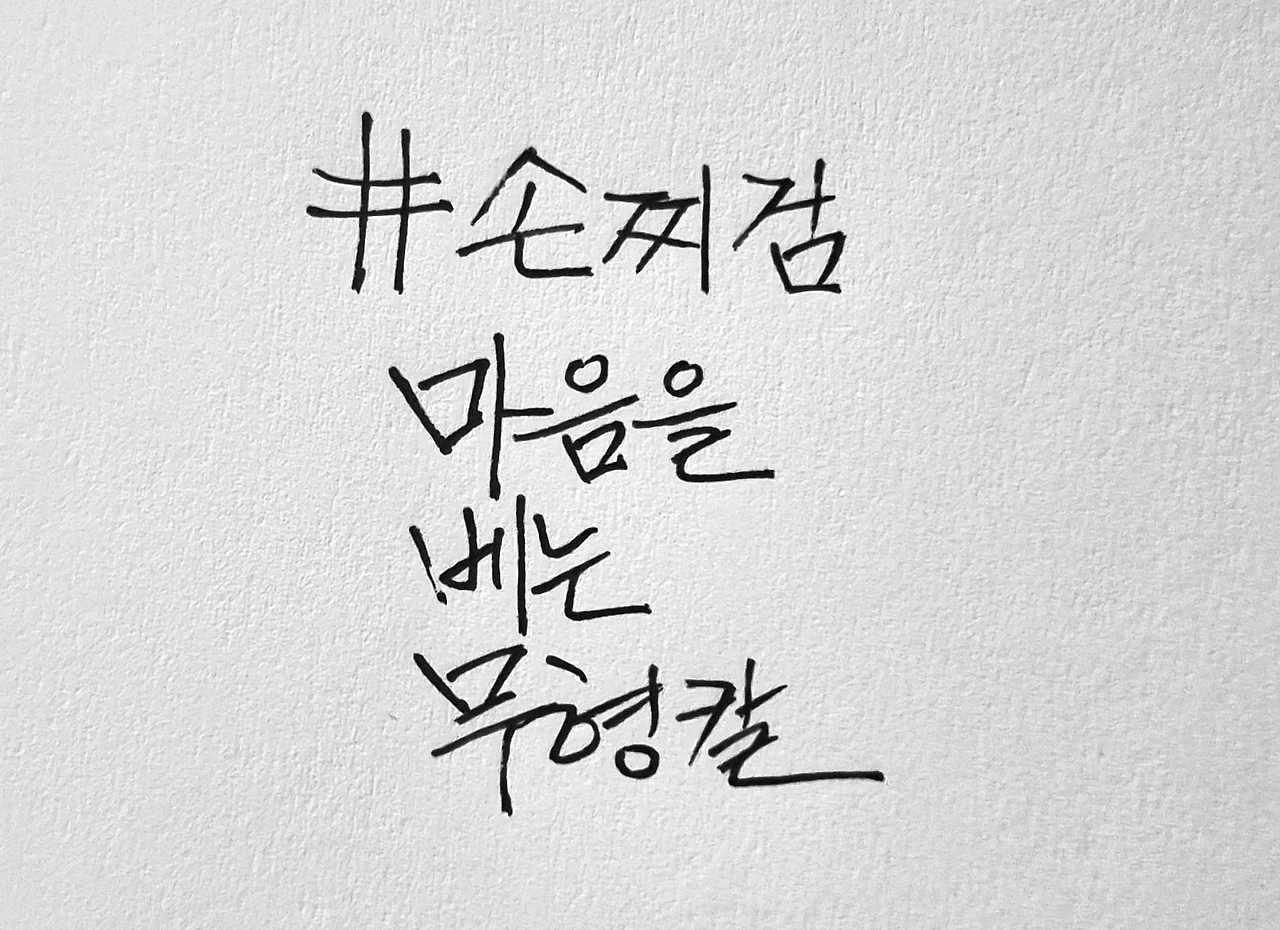 #손찌검
마음을
베는
무형칼